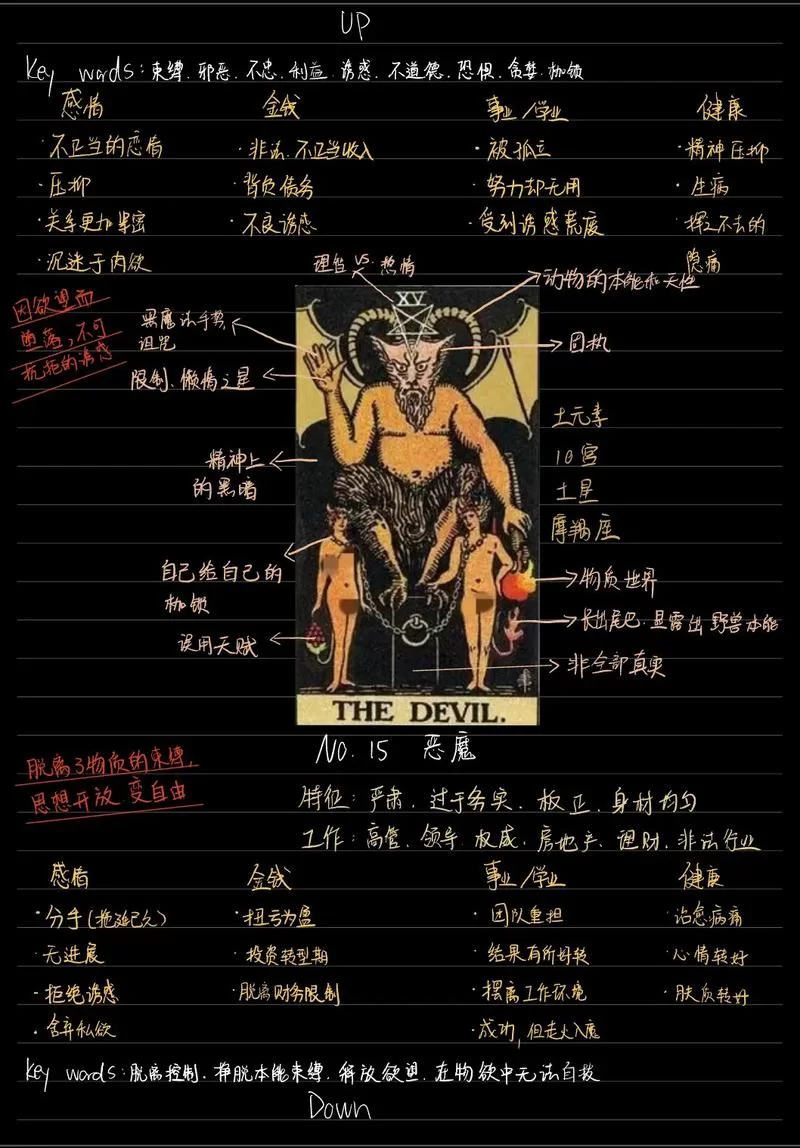 UP
Key words: 束缚、邪恶、不忠、利益、诱惑、不道德、恐惧、贪婪、枷锁
感情 金钱 事业/学业 健康
· 不正当的恋情 · 非法、不正当收入 · 被孤立 · 精神压抑
· 压抑 · 背负债务 · 努力却无用 · 生病
· 关系更加紧密 · 不良诱惑 · 受到诱惑荒废 · 挥之不去的
· 沉迷于肉欲 隐痛
理性 vs. 热情
动物的本能和天性
因欲望而
堕落,不可
抗拒的诱惑
XV
黑魔法手势
诅咒
固执
限制、懒惰之星
土元素
10宫
土星
摩羯座
精神上
的黑暗
自己给自己的
枷锁
物质世界
长出尾巴、显露出野兽本能
误用天赋
非全部真实
THE DEVIL.
NO. 15 恶魔
脱离了物质的束缚,
思想开放、变自由
特征:严肃、过于务实、板正、身材均匀
工作:高管、领导、权威、房地产、理财、非法行业
感情 金钱 事业/学业 健康
· 分手(拖延已久) · 扭亏为盈 · 团队重担 · 治愈病痛
· 无进展 · 投资转型期 · 结果有所好转 · 心情转好
· 拒绝诱惑 · 脱离财务限制 · 摆离工作环境 · 肤质转好
· 舍弃私欲 · 成功,但走火入魔
Key words: 脱离控制、挣脱本能束缚、解放欲望、在物欲中无法自拔
Down